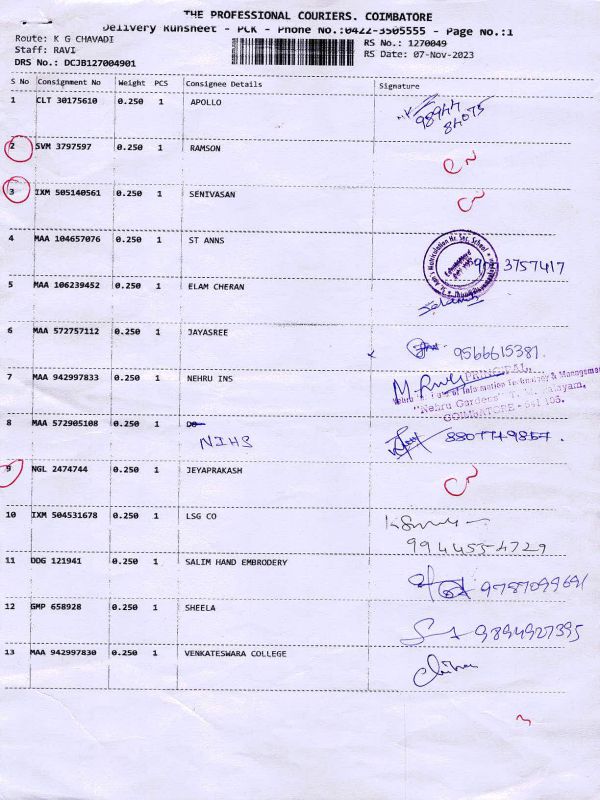 THE PROFESSIONAL COURIERS. COIMBATORE
Delivery Runsheet - PCK - Phone No.:0422-3505555 - Page No.:1
Route: K G CHAVADI
RS No.: 1270049
Staff: RAVI
RS Date: 07-Nov-2023
DRS No.: DCJB127004901
S No Consignment No Weight PCS Consignee Details Signature
1 CLT 30175610 0.250 1 APOLLO
98944
84075
2 SVM 3797597 0.250 1 RAMSON
3 IXM 505140561 0.250 1 SENIVASAN
4 MAA 104657076 0.250 1 ST ANNS
Matriculation Hr. Sec. School
3757417
5 MAA 106239452 0.250 1 ELAM CHERAN
6 MAA 572757112 0.250 1 JAYASREE
9566615381.
7 MAA 942997833 0.250 1 NEHRU INS
PRINCIPAL,
Nehru Institute of Information Technology & Management
"Nehru Gardens" T. M. Palayam,
COIMBATORE - 641 105.
8 MAA 572905108 0.250 1 NIHS
8807749857.
9 NGL 2474744 0.250 1 JEYAPRAKASH
10 IXM 504531678 0.250 1 LSG CO
9944554729
11 DDG 121941 0.250 1 SALIM HAND EMBRODERY
9787099691
12 GMP 658928 0.250 1 SHEELA
9894927395
13 MAA 942997830 0.250 1 VENKATESWARA COLLEGE